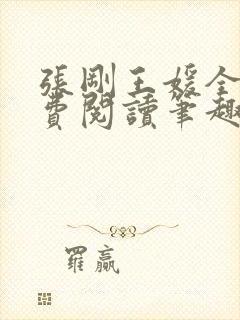 張剛王媛全
費閱讀筆趣
羅贏